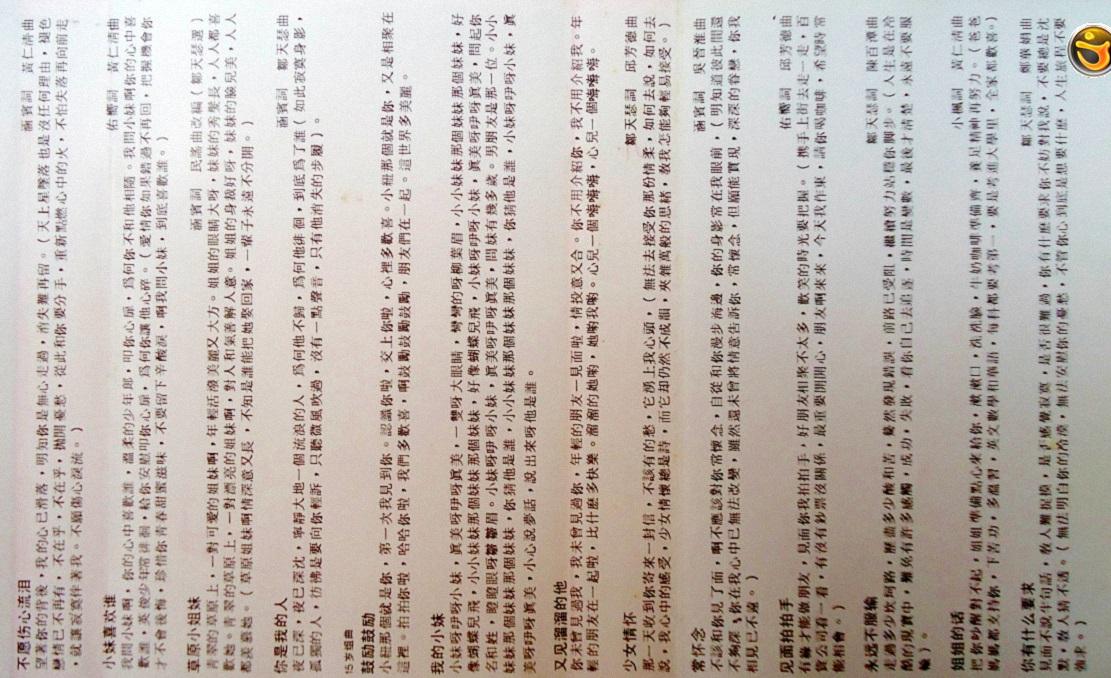 不愿伤心流泪 商賓詞 黃仁清曲
望著你的背後，我的心已滑落，明知你是無心走過，消失難再留。（天上星墜落也是沒任何理由，褪色
戀情已不再有，不在乎，不在乎，拋開憂愁，從此和你要分手，重新點燃心中的火，不怕失落再向前走
，就讓寂寞伴著我。不願傷心淚流。）
小妹喜欢谁 佑嚮詞 黃仁清曲
我問小妹啊，你的心中喜歡誰，溫柔的少年郎，叩你心扉，爲何你不和他相隨。我問小妹啊你的心中喜
歡誰，英俊少年常徘徊，給你安慰叩你心扉，爲何你讓他心碎。（愛情你如果錯過不再回，把握機會你
才不會後悔，珍惜你青春甜蜜滋味，不要留下辛酸淚，啊我問小妹，到底喜歡誰。）
草原小姐妹 商賓詞 民謠曲改編（鄒天瑟選）
青翠的草原上，一對可愛的姐妹啊，年輕活潑美麗又大方。姐姐的眼睛大呀，妹妹的秀髮長，人人都喜
歡她。青翠的草原上，一對漂亮的姐妹啊，對人和氣善解人意。姐姐的身裁好呀，妹妹的臉兒美，人人
都羨慕她。（草原姐妹啊情深意又長，不知是誰能把她娶回家，一輩子永遠不分開。）
你是我的人 商賓詞 鄒天瑟曲
夜已深沈，夜已深沈，寧靜大地一個流淚的人，爲何他不歸，爲何他徘徊，到底爲了誰（如此寂寞身影，
孤獨的人，彷彿是要向你輕訴，只聽微風吹過，沒有一點聲音，只有他消失的步履）。
15岁组曲
鼓励鼓励
小紐那個就是你，第一次我見到你。認識你啦，交上你啦，心裡多歡喜。小紐那個就是你，又是相聚在
這裡。拍拍你啦，哈哈你啦，我們多歡喜，啊鼓勵鼓勵鼓勵，朋友們在一起。這世界多美麗。
我的小妹
小妹呀伊呀小妹，眞美呀伊呀眞美，一雙呀大眼睛，彎彎的呀柳葉眉，小小妹妹那個妹妹那個妹妹，好
像蝴蝶兒飛，小小妹妹那個妹妹那個妹妹，好像蝴蝶兒飛，小妹呀伊呀小妹，眞美呀伊呀眞美，問起你
名和姓，瞪瞪眼呀皺皺眉。小妹呀伊呀小妹，眞美呀伊呀眞美，問妹有幾多歲。男朋友是那一位。小小
妹妹那個妹妹那個妹妹，你猜他是誰，小小妹妹那個妹妹那個妹妹，你猜他是誰，小妹呀伊呀小妹，眞
美呀伊呀眞美，小心說夢話，說出來呀他是誰。
又见溜溜的他
你未曾見過我，我未曾見過你，年輕的朋友一見面啦，情投意又合。你不用介紹你，我不用介紹我。年
輕的朋友在一起啦，比什麼多快樂。溜溜的她喲，她喲我喲。心兒一個嗨嗨嗨，心兒一個嗨嗨嗨。
少女情怀 鄒天瑟詞 邱芳德曲
那一天收到你寄來一封信，不該有的愁，它湧上我心頭，（無法去接受你那份情柔，如何去說，如何去
說，我心中的感受，少女情懷總是詩，而它却仍然不成韻，夾雜萬般的思緒，敎我怎能夠輕易接受。）
常怀念 商賓詞 吳晉淮曲
不該和你見了面，啊不應該對你常懷念，自從和你漫步海邊，你的身影常在我眼前，（明知道彼此間還
不夠深，你在我心中已無法改變，雖然還未曾將情意告訴你，常懷念，但願能實現，深深的眷戀，你我
相見已不遠。）
见面拍拍手 佑嚮詞 邱芳德曲
有緣才能做朋友，見面你我拍拍手，好朋友相聚不太多，歡笑的時光要把握。（携手上街去走一走，百
貨公司看一看，有沒有鈔票沒關係，最重要開開心，朋友啊來來，今天我作東，請你喝咖啡，希望時常
能相會。）
永远不服输 鄒天瑟詞 陳百潭曲
走過多少坎坷路，歷盡多少酸和苦，驀然發現錯誤，前路已受阻，繼續努力站穩你腳步。（人生是在冷
酷的現實中，難免有許多感觸，成功，失敗，看你自己去追逐，時間是變數，最後才清楚，永遠不要服
輸）。
姐姐的话 小楓詞 黃仁清曲
把你吵醒對不起，姐姐準備點心來給你，漱漱口，洗洗臉，牛奶咖啡準備齊，養足精神再努力。（爸爸
媽媽都支持你，下苦功，多溫習，英文數學和華語，每科都要考第一，要是考進大學里，全家都歡喜。）
你有什么要求 鄒天瑟詞 鄭華娟曲
見面不說半句話，敎人難捉摸，是否感覺寂寞，是否很難過，你有什麼要求你不妨對我說，不要總是沈
默，敎人猜不透。（無法明白你的冷漠，無法安慰你的憂愁，不管你心到底是想要什麼，人生旅程不要
強求。）